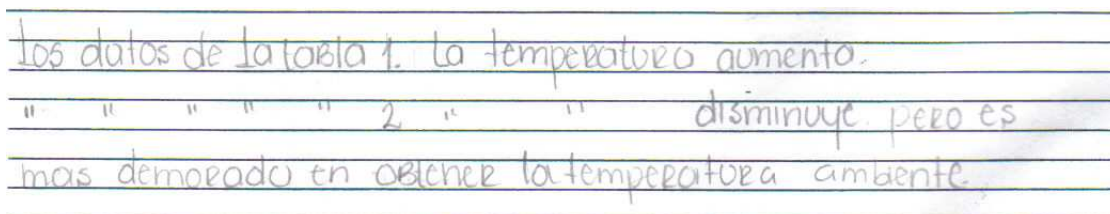 Los datos de la tabla 1. La temperatura aumento.
" " " " " 2 " " disminuye pero es
mas demorado en obtener la temperatura ambiente